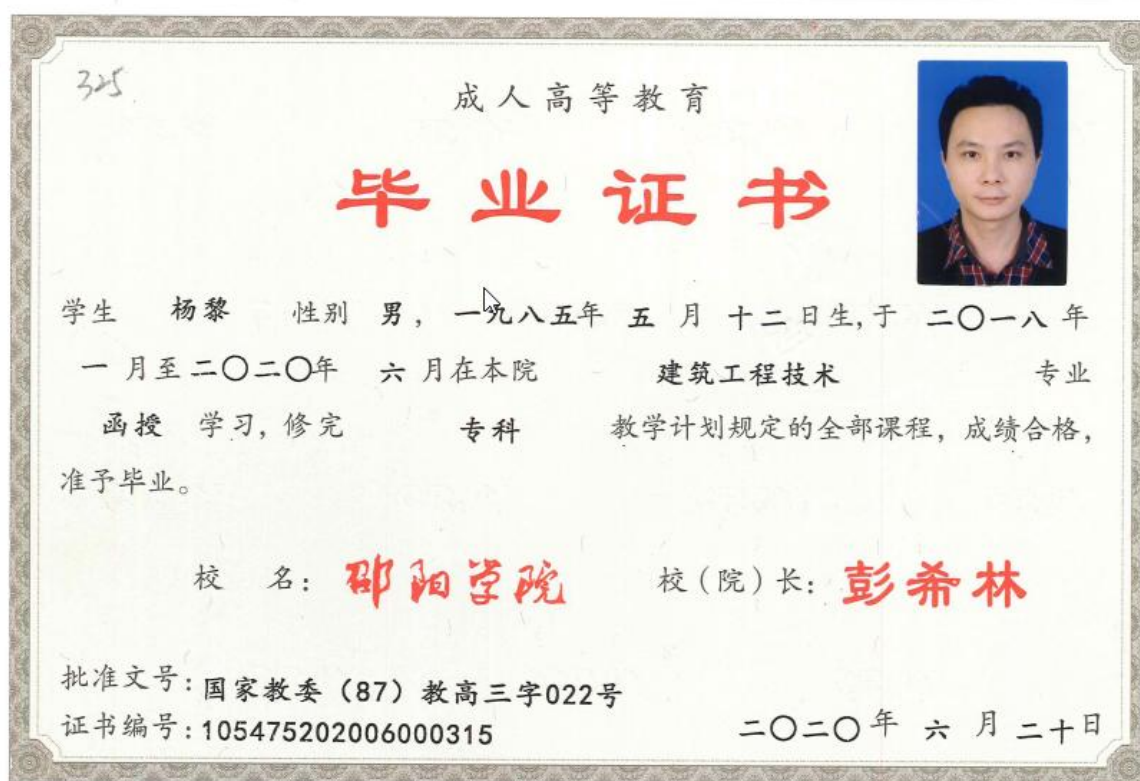 325
成人高等教育
毕业证书
学生 杨黎 性别 男，一九八五年 五 月 十二 日生,于 二〇一八 年
一 月至 二〇二〇年 六 月在本院 建筑工程技术 专业
函授 学习, 修完 专科 教学计划规定的全部课程，成绩合格，
准予毕业。
校 名：邵阳学院 校（院）长：彭希林
批准文号：国家教委（87）教高三字022号
证书编号：105475202006000315 二〇二〇年 六 月 二十日